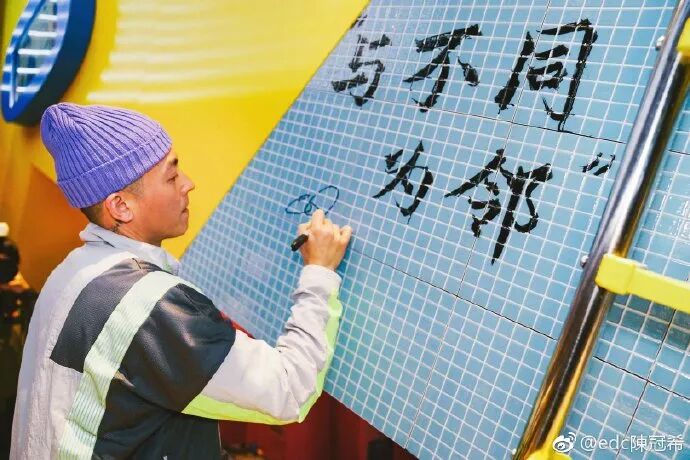 “与不同
为邻”
@edc陳冠希